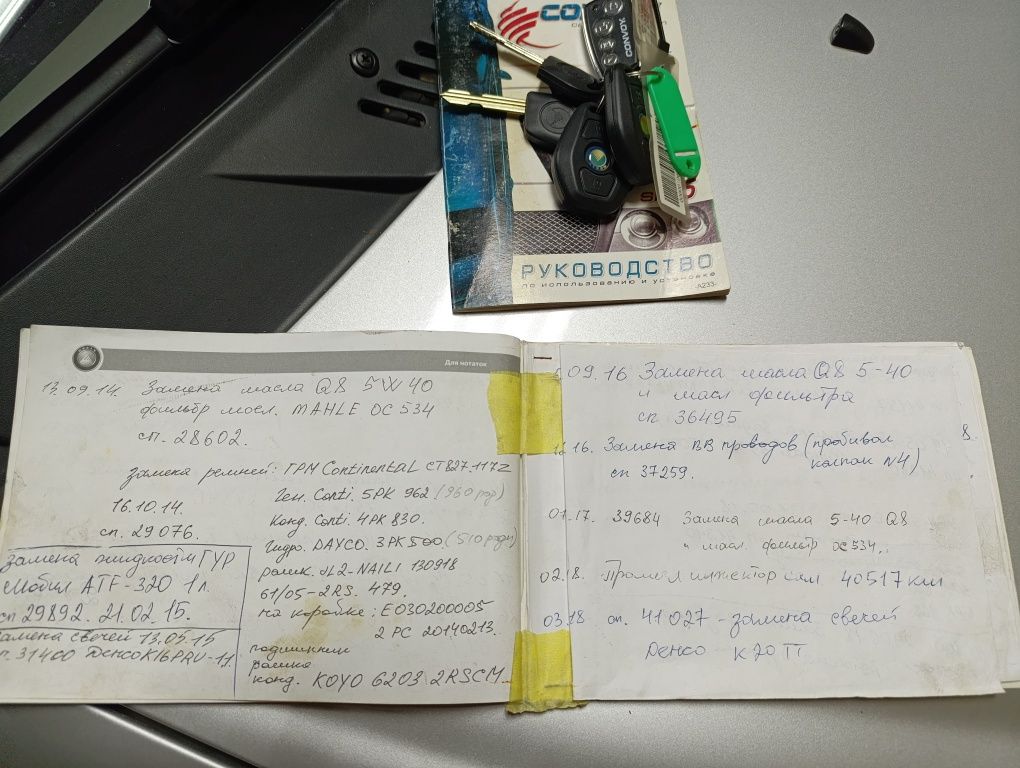 CONVOX
РУКОВОДСТВО
по использованию и установке
-A233-
Для нотаток
13.09.14. Замена масла Q8 5W40
фильтр масл. MAHLE OC534
сп. 28602.
замена ремней: ГРМ Continental CT827.117Z
16.10.14.
сп. 29076.
Ген. Conti. 5PK 962 (960 род)
Конд. Conti. 4PK 830.
Гидро. DAYCO. 3PK500 (510 родн)
ролик. JL2-NAILI 130918
61/05-2RS. 479.
на коробке: E030200005
2 PC 20140213.
подшипник
ролика
конд. KOYO 6203 2RSCM
Замена жидкости ГУР
Мобил ATF-320 1л.
сп 29892. 21.02.15.
Замена свечей 13.05.15
п. 31400 Денсо K16PRU-11
.09.16 Замена масла Q8 5-40
и масл фильтра
сп 36495
12.16. Замена ВВ проводов (пробивал
колпак №4)
сп 37259.
8.
01.17. 39684 Замена масла 5-40 Q8
и масл. фильтр OC534.
02.18. Промыл инжектор сам 40517 км
03.18 сп. 41027 - замена свечей
Денсо K20TT